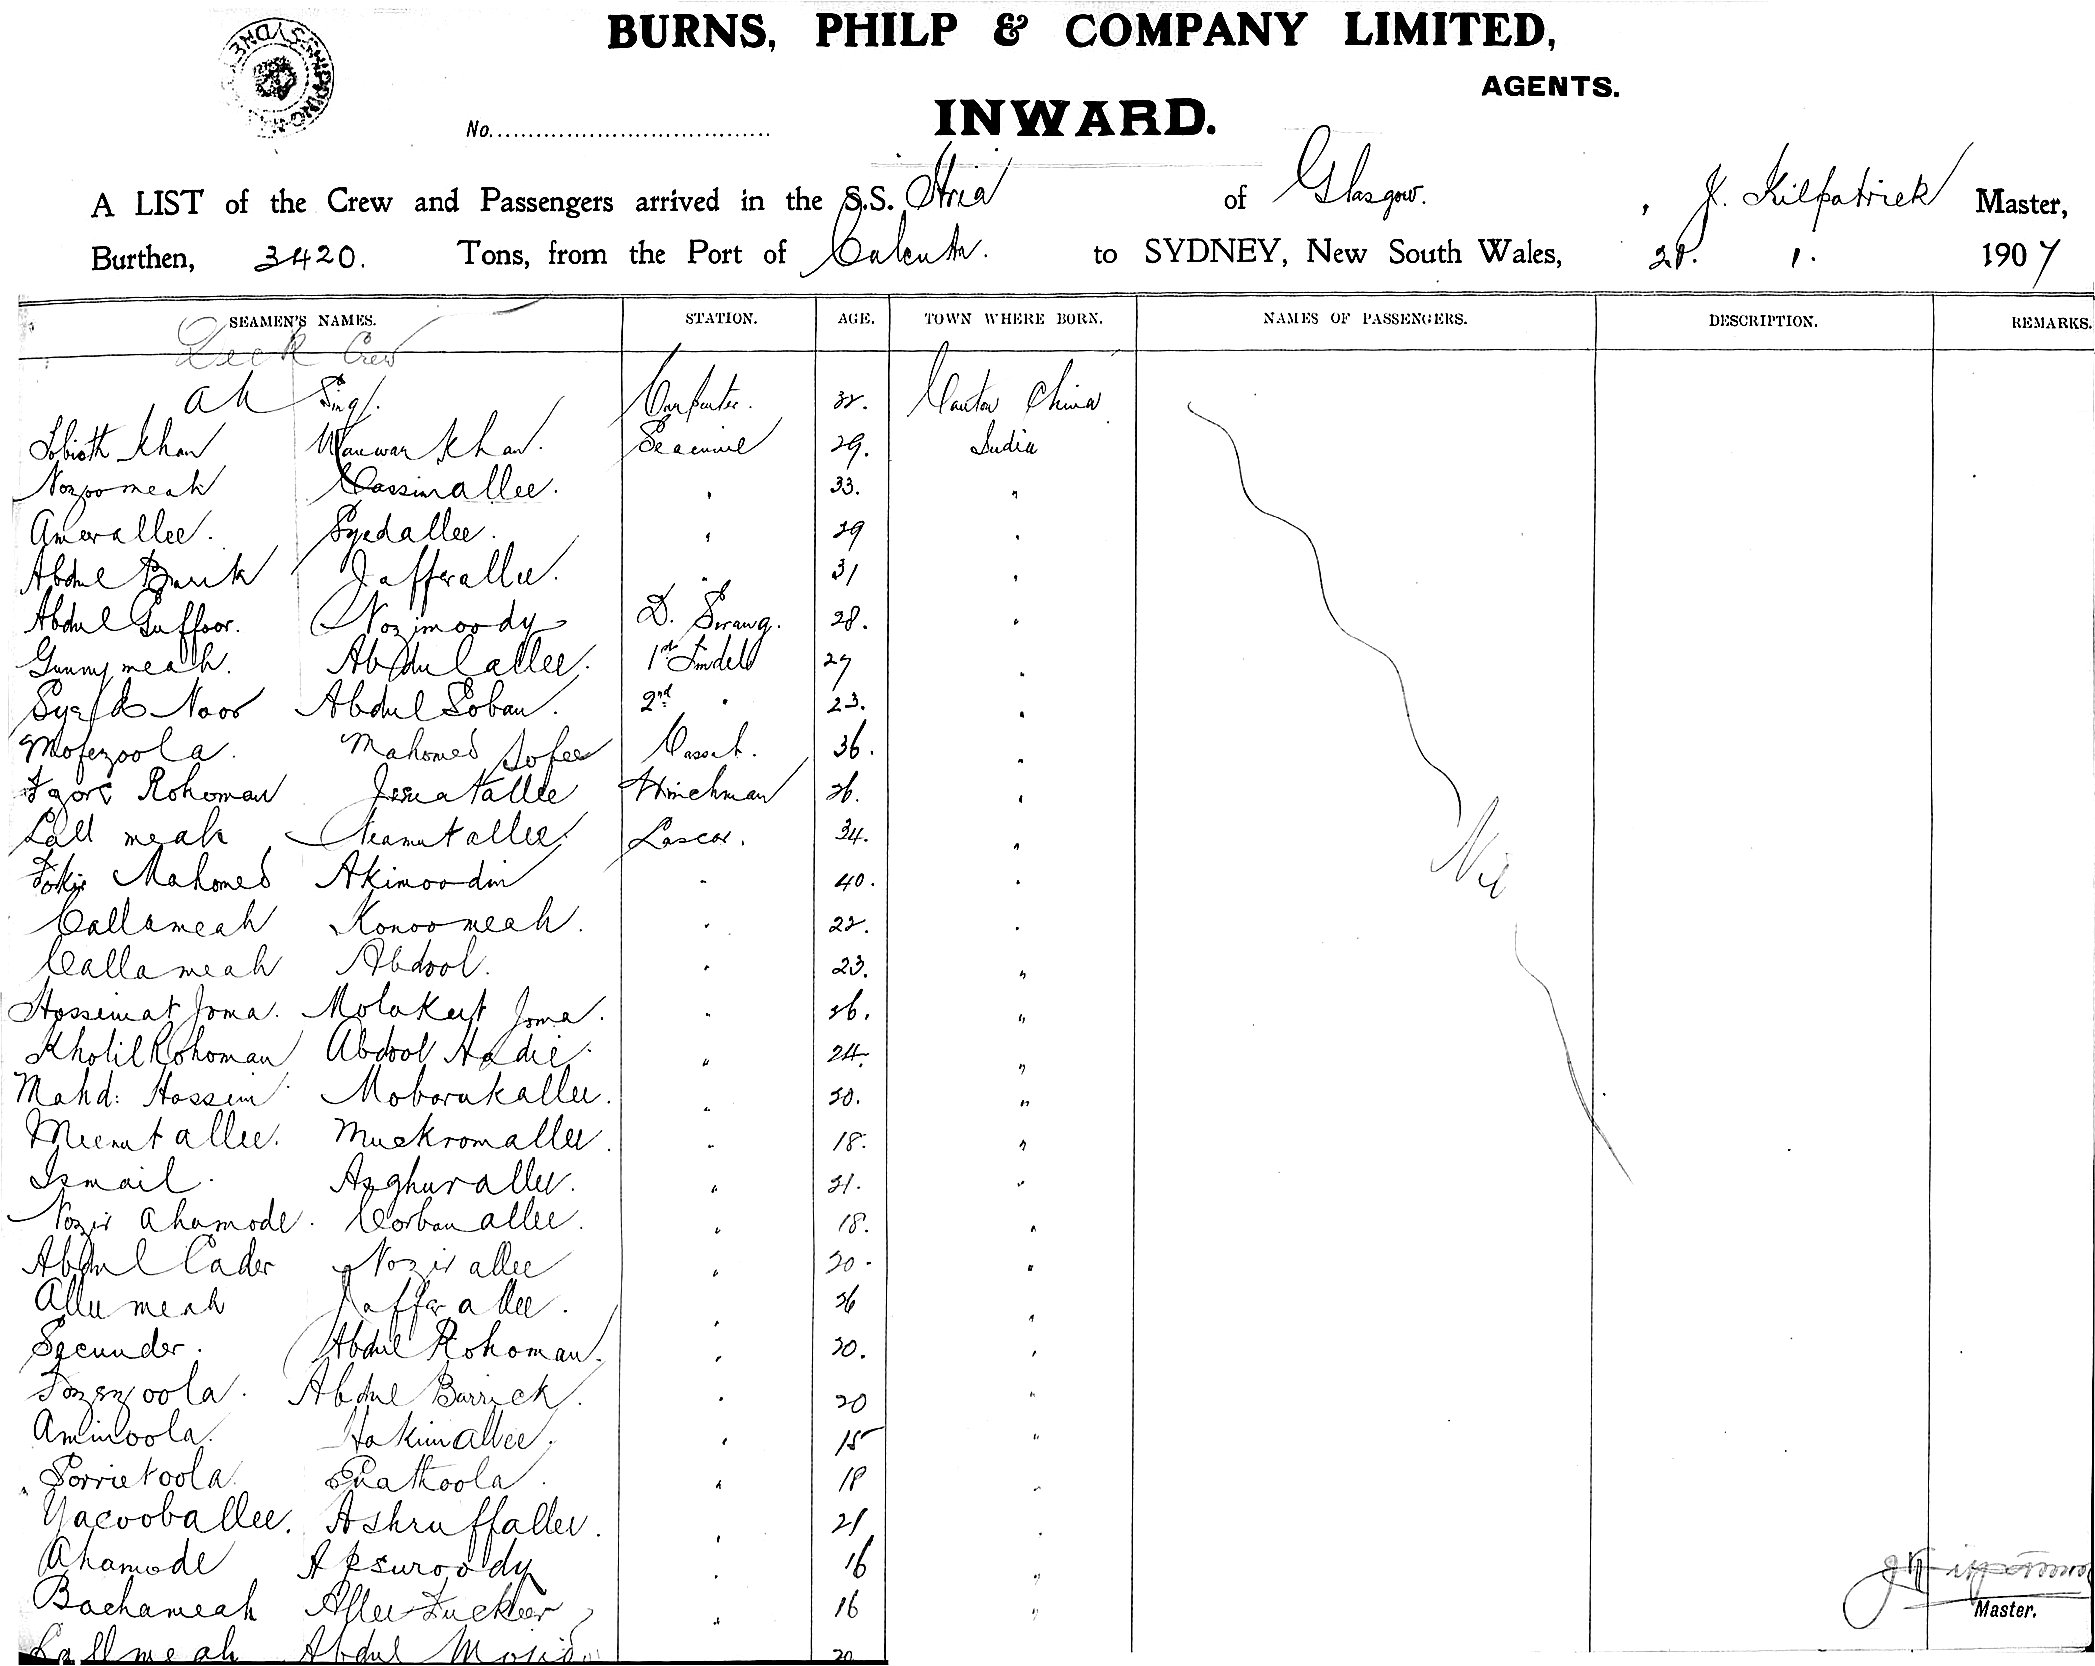 BURNS, PHILP & COMPANY LIMITED,
AGENTS.
No.
INWARD.
A LIST of the Crew and Passengers arrived in the S.S. of Glasgow. , J. Kilpatrick Master,
Burthen, 3420. Tons, from the Port of Calcutta. to SYDNEY, New South Wales, 28. 1. 1907
SEAMEN'S NAMES. STATION. AGE. TOWN WHERE BORN. NAMES OF PASSENGERS. DESCRIPTION. REMARKS.
Deck Crew
Ah Sing. Carpenter. 32. Canton China
Khan Munwar Khan. 29. India
Nozoomeah Cassimallee. " 33. "
Amerallee. Syedallee. " 29 "
Abdul Jafferallee. " 31 "
Abdul Guffoor. Nozimoody D. Serang. 28. "
Gunnymeah. Abdulallee. 1st Tindell 27 "
Syed Noor Abdul Soban. 2nd " 23. "
Mofezoola. Mahomed Sofee Cassab. 36. "
Rohoman Winchman 26. "
Lall meah Neamutallee. Lascar. 34. "
Fokir Mahomed Akimoodin " 40. "
Nil
Callameah Konoomeah. " 22. "
Callameah Abdool. " 23. "
Hosseinat Joma. Joma. " 26. "
Kholil Rohoman Abdool Hadie. " 24. "
Mahd: Hossein Moborukallee. " 20. "
Meenutallee. Muckromallee. " 18. "
Ismail. Asghurallee. " 21. "
Nozir Ahamode. Corbanallee. " 18. "
Abdul Cader Nozirallee " 20. "
Allumeah Jafferallee. " 26 "
Secunder. Abdul Rohoman. " 20. "
Abdul Barrick. " 20 "
Aminoola. Hakimallee. " 15 "
Sorrietoola. " 18 "
Yacooballee. Ashruffallee. " 21 "
Ahamode " 16 "
Bachameah Allee Fuckeer " 16 "
Master.
Lallmeah Abdul 20